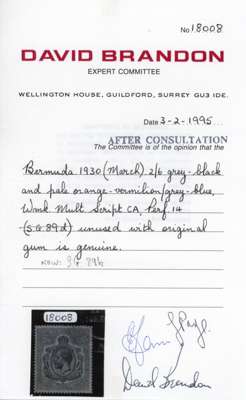 No 18008
DAVID BRANDON
EXPERT COMMITTEE
WELLINGTON HOUSE, GUILDFORD, SURREY GU3 1DE.
Date 3-2-1995
AFTER CONSULTATION
The Committee is of the opinion that the
Bermuda 1930 (March) 2/6 grey-black
and pale orange-vermilion/grey-blue,
Wmk Mult Script CA, Perf 14
(S.G. 89d) unused with original
gum is genuine.
NOW: SG 89h
18008
David Brandon